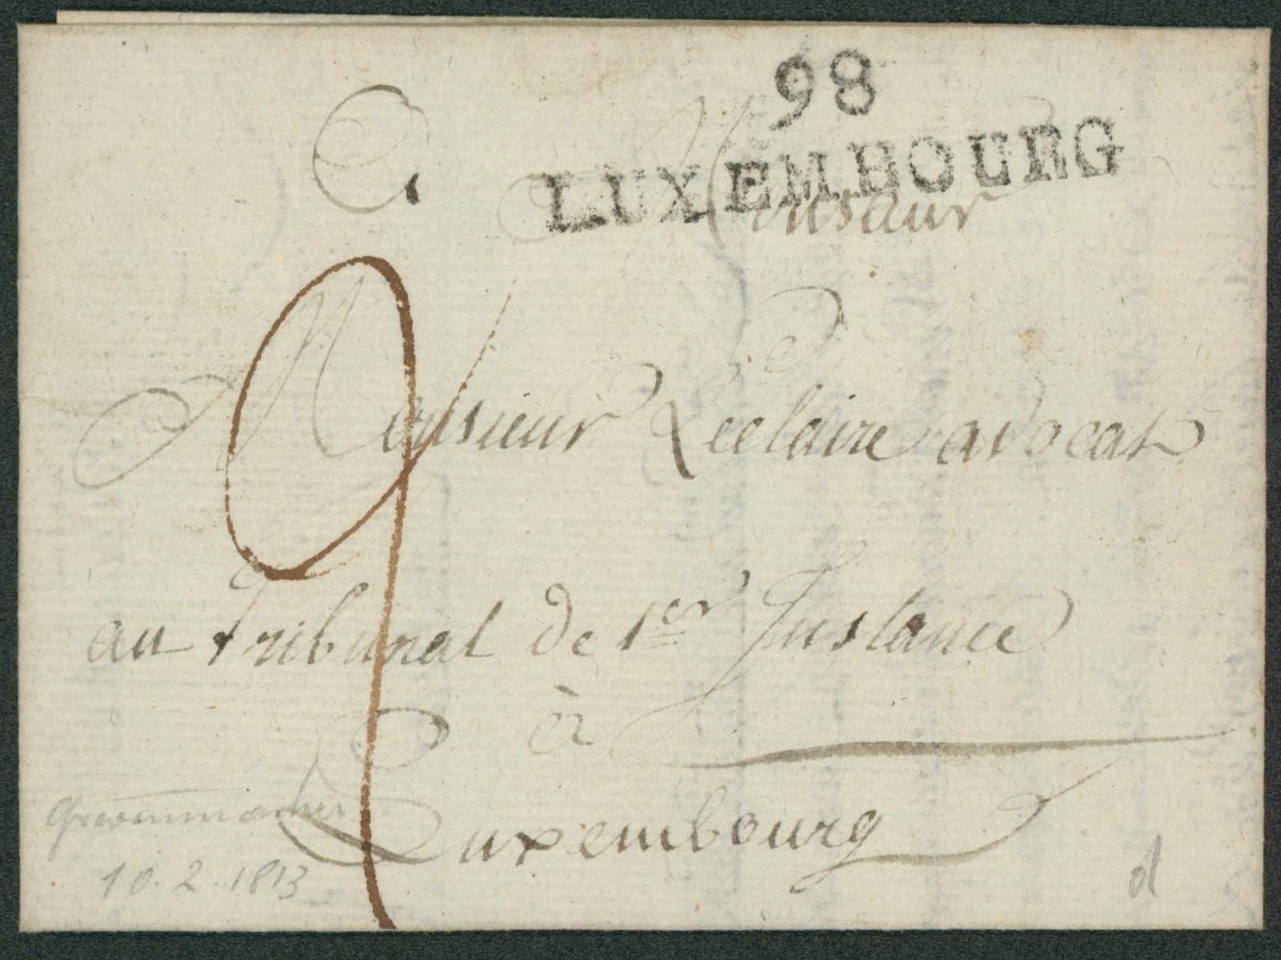 98
LUXEMBOURG
A
Monsieur
Monsieur Leclaire avocat
au tribunal de 1er Instance
à
Luxembourg
10.2.1813
d